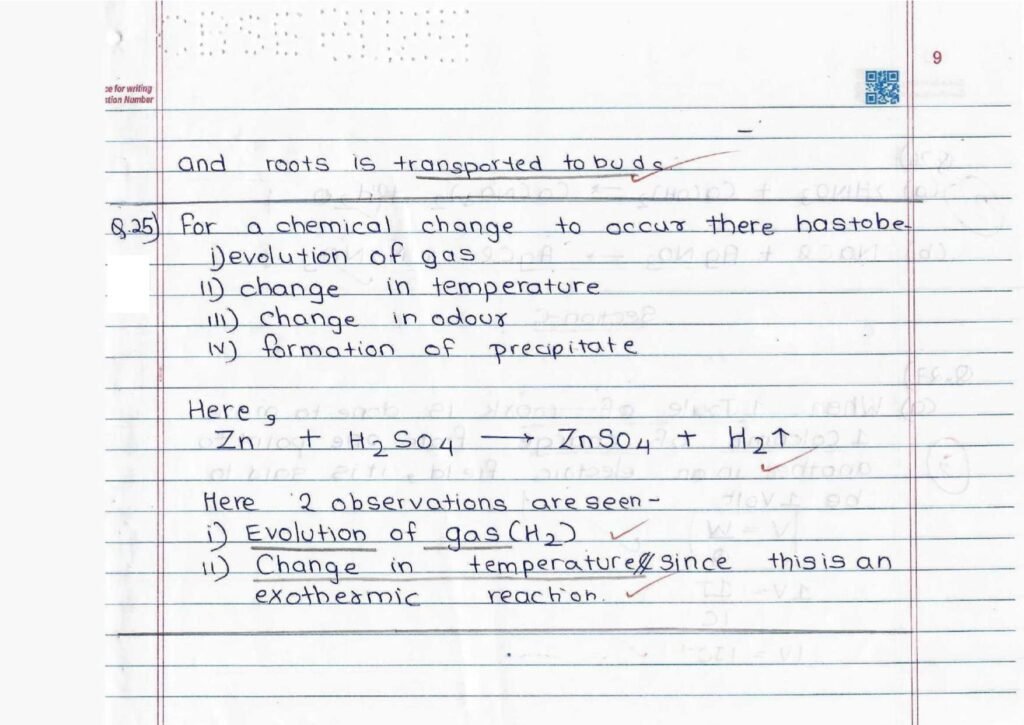 CBSE
9
ce for writing
stion Number
and roots is transported to buds
Q.25) For a chemical change to occur there has to be-
i) evolution of gas
ii) change in temperature
iii) change in odour
iv) formation of precipitate
Here,
Zn + H₂SO₄ → ZnSO₄ + H₂↑
Here 2 observations are seen -
i) Evolution of gas (H₂)
ii) Change in temperature since this is an
exothermic reaction.